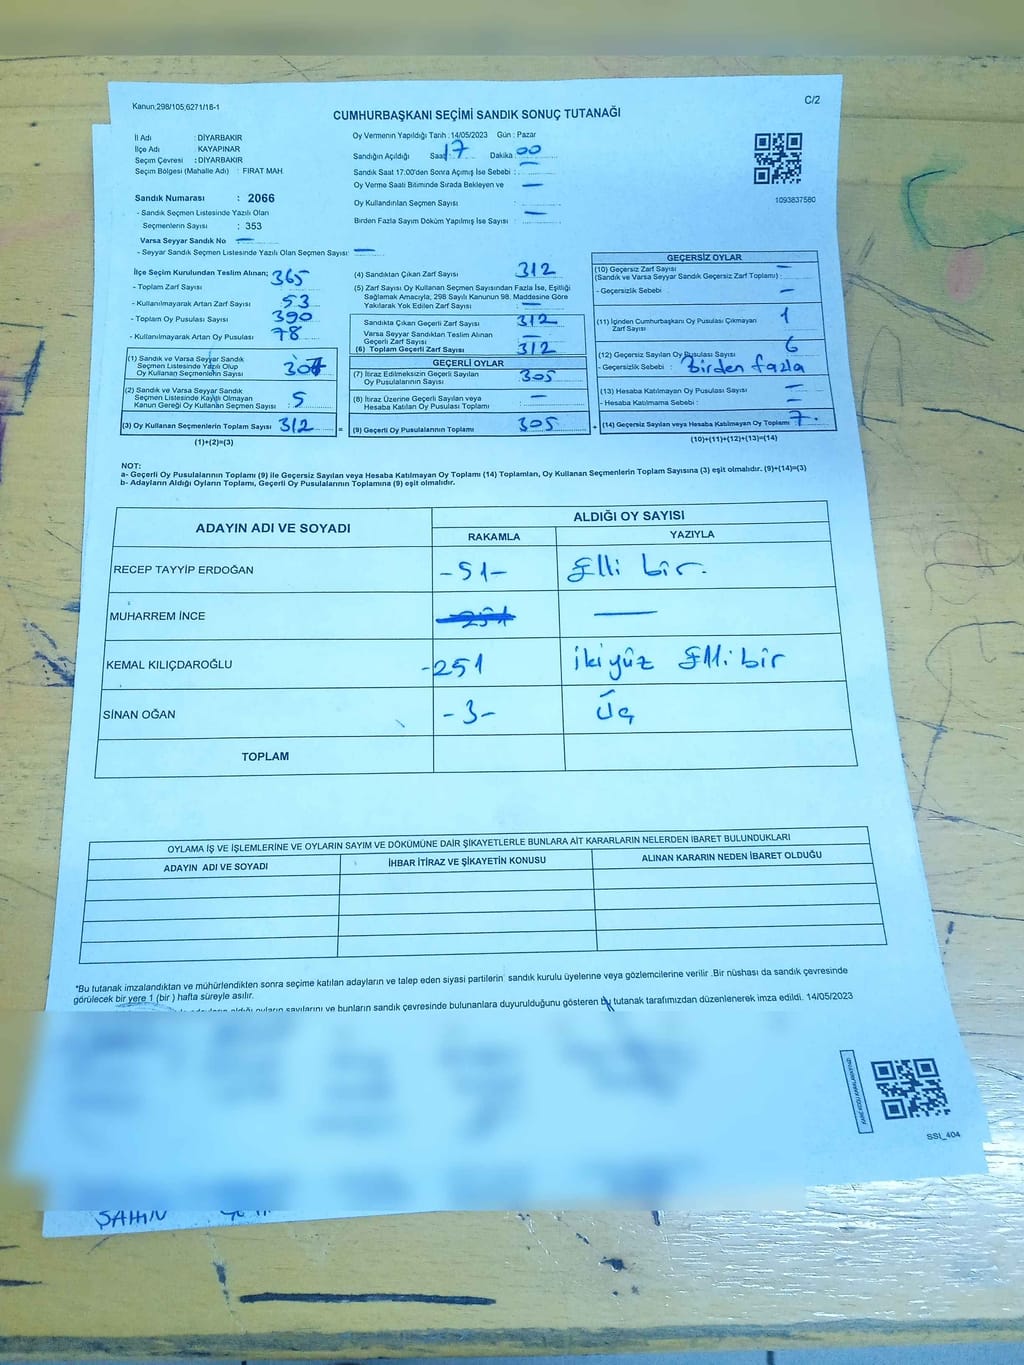 Kanun;298/105;6271/18-1
C/2
CUMHURBAŞKANI SEÇİMİ SANDIK SONUÇ TUTANAĞI
İl Adı : DİYARBAKIR
İlçe Adı KAYAPINAR
Seçim Çevresi : DİYARBAKIR
Seçim Bölgesi (Mahalle Adı) : FIRAT MAH.
Oy Vermenin Yapıldığı Tarih : 14/05/2023 Gün : Pazar
Sandığın Açıldığı Saat : 17 Dakika : 00
Sandık Saat 17:00'den Sonra Açılmış İse Sebebi : —
Oy Verme Saati Bitiminde Sırada Bekleyen ve —
Oy Kullandırılan Seçmen Sayısı :
Birden Fazla Sayım Döküm Yapılmış İse Sayısı : —
1093837580
Sandık Numarası : 2066
- Sandık Seçmen Listesinde Yazılı Olan
Seçmenlerin Sayısı : 353
Varsa Seyyar Sandık No —
- Seyyar Sandık Seçmen Listesinde Yazılı Olan Seçmen Sayısı : —
İlçe Seçim Kurulundan Teslim Alınan;
- Toplam Zarf Sayısı 365
- Kullanılmayarak Artan Zarf Sayısı 53
- Toplam Oy Pusulası Sayısı 390
- Kullanılmayarak Artan Oy Pusulası 78
(1) Sandık ve Varsa Seyyar Sandık
Seçmen Listesinde Yazılı Olup
Oy Kullanan Seçmenlerin Sayısı
(2) Sandık ve Varsa Seyyar Sandık
Seçmen Listesinde Kayıtlı Olmayan
Kanun Gereği Oy Kullanan Seçmen Sayısı : 5
(3) Oy Kullanan Seçmenlerin Toplam Sayısı 312 =
(1)+(2)=(3)
(4) Sandıktan Çıkan Zarf Sayısı 312
(5) Zarf Sayısı Oy Kullanan Seçmen Sayısından Fazla İse, Eşitliği
Sağlamak Amacıyla, 298 Sayılı Kanunun 98. Maddesine Göre
Yakılarak Yok Edilen Zarf Sayısı : —
Sandıkta Çıkan Geçerli Zarf Sayısı 312
Varsa Seyyar Sandıktan Teslim Alınan
Geçerli Zarf Sayısı —
(6) Toplam Geçerli Zarf Sayısı 312
GEÇERLİ OYLAR
(7) İtiraz Edilmeksizin Geçerli Sayılan
Oy Pusulalarının Sayısı 305
(8) İtiraz Üzerine Geçerli Sayılan veya
Hesaba Katılan Oy Pusulası Toplamı —
(9) Geçerli Oy Pusulalarının Toplamı 305 +
GEÇERSİZ OYLAR
(10) Geçersiz Zarf Sayısı —
(Sandık ve Varsa Seyyar Sandık Geçersiz Zarf Toplamı) :
- Geçersizlik Sebebi : —
(11) İçinden Cumhurbaşkanı Oy Pusulası Çıkmayan
Zarf Sayısı 1
(12) Geçersiz Sayılan Oy Pusulası Sayısı 6
- Geçersizlik Sebebi : Birden fazla
(13) Hesaba Katılmayan Oy Pusulası Sayısı —
- Hesaba Katılmama Sebebi : —
(14) Geçersiz Sayılan veya Hesaba Katılmayan Oy Toplamı 7.
(10)+(11)+(12)+(13)=(14)
NOT:
a- Geçerli Oy Pusulalarının Toplamı (9) ile Geçersiz Sayılan veya Hesaba Katılmayan Oy Toplamı (14) Toplamları, Oy Kullanan Seçmenlerin Toplam Sayısına (3) eşit olmalıdır. (9)+(14)=(3)
b- Adayların Aldığı Oyların Toplamı, Geçerli Oy Pusulalarının Toplamına (9) eşit olmalıdır.
ADAYIN ADI VE SOYADI
ALDIĞI OY SAYISI
RAKAMLA YAZIYLA
RECEP TAYYİP ERDOĞAN -51- Elli bir.
MUHARREM İNCE 251 —
KEMAL KILIÇDAROĞLU -251 İki yüz Elli bir
SİNAN OĞAN -3- Üç
TOPLAM
OYLAMA İŞ VE İŞLEMLERİNE VE OYLARIN SAYIM VE DÖKÜMÜNE DAİR ŞİKAYETLERLE BUNLARA AİT KARARLARIN NELERDEN İBARET BULUNDUKLARI
ADAYIN ADI VE SOYADI İHBAR İTİRAZ VE ŞİKAYETİN KONUSU ALINAN KARARIN NEDEN İBARET OLDUĞU
*Bu tutanak imzalandıktan ve mühürlendikten sonra seçime katılan adayların ve talep eden siyasi partilerin sandık kurulu üyelerine veya gözlemcilerine verilir .Bir nüshası da sandık çevresinde
görülecek bir yere 1 (bir ) hafta süreyle asılır.
oyların sayılarını ve bunların sandık çevresinde bulunanlara duyurulduğunu gösteren bu tutanak tarafımızdan düzenlenerek imza edildi. 14/05/2023
SSI_404
ŞAHİN